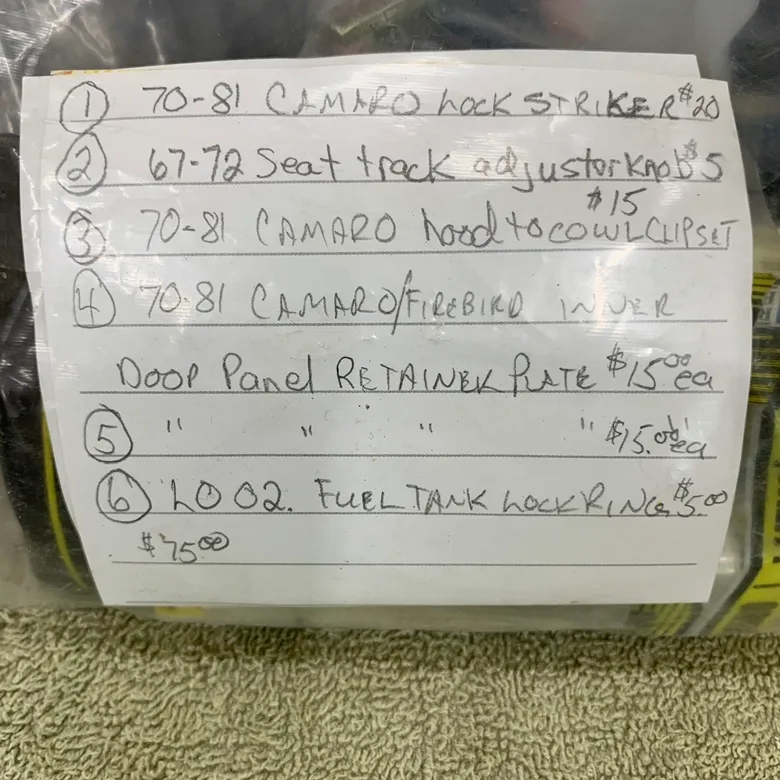 ① 70-81 CAMARO LOCK STRIKER $20
② 67-72 Seat track adjustor Knob $5
$15
③ 70-81 CAMARO hood to COWL CLIP SET
④ 70-81 CAMARO/FIREBIRD INNER
DOOR Panel RETAINER PLATE $15.00 ea
⑤ " " " " $15.00 ea
⑥ LO 02. FUEL TANK LOCK RING $5.00
$75.00